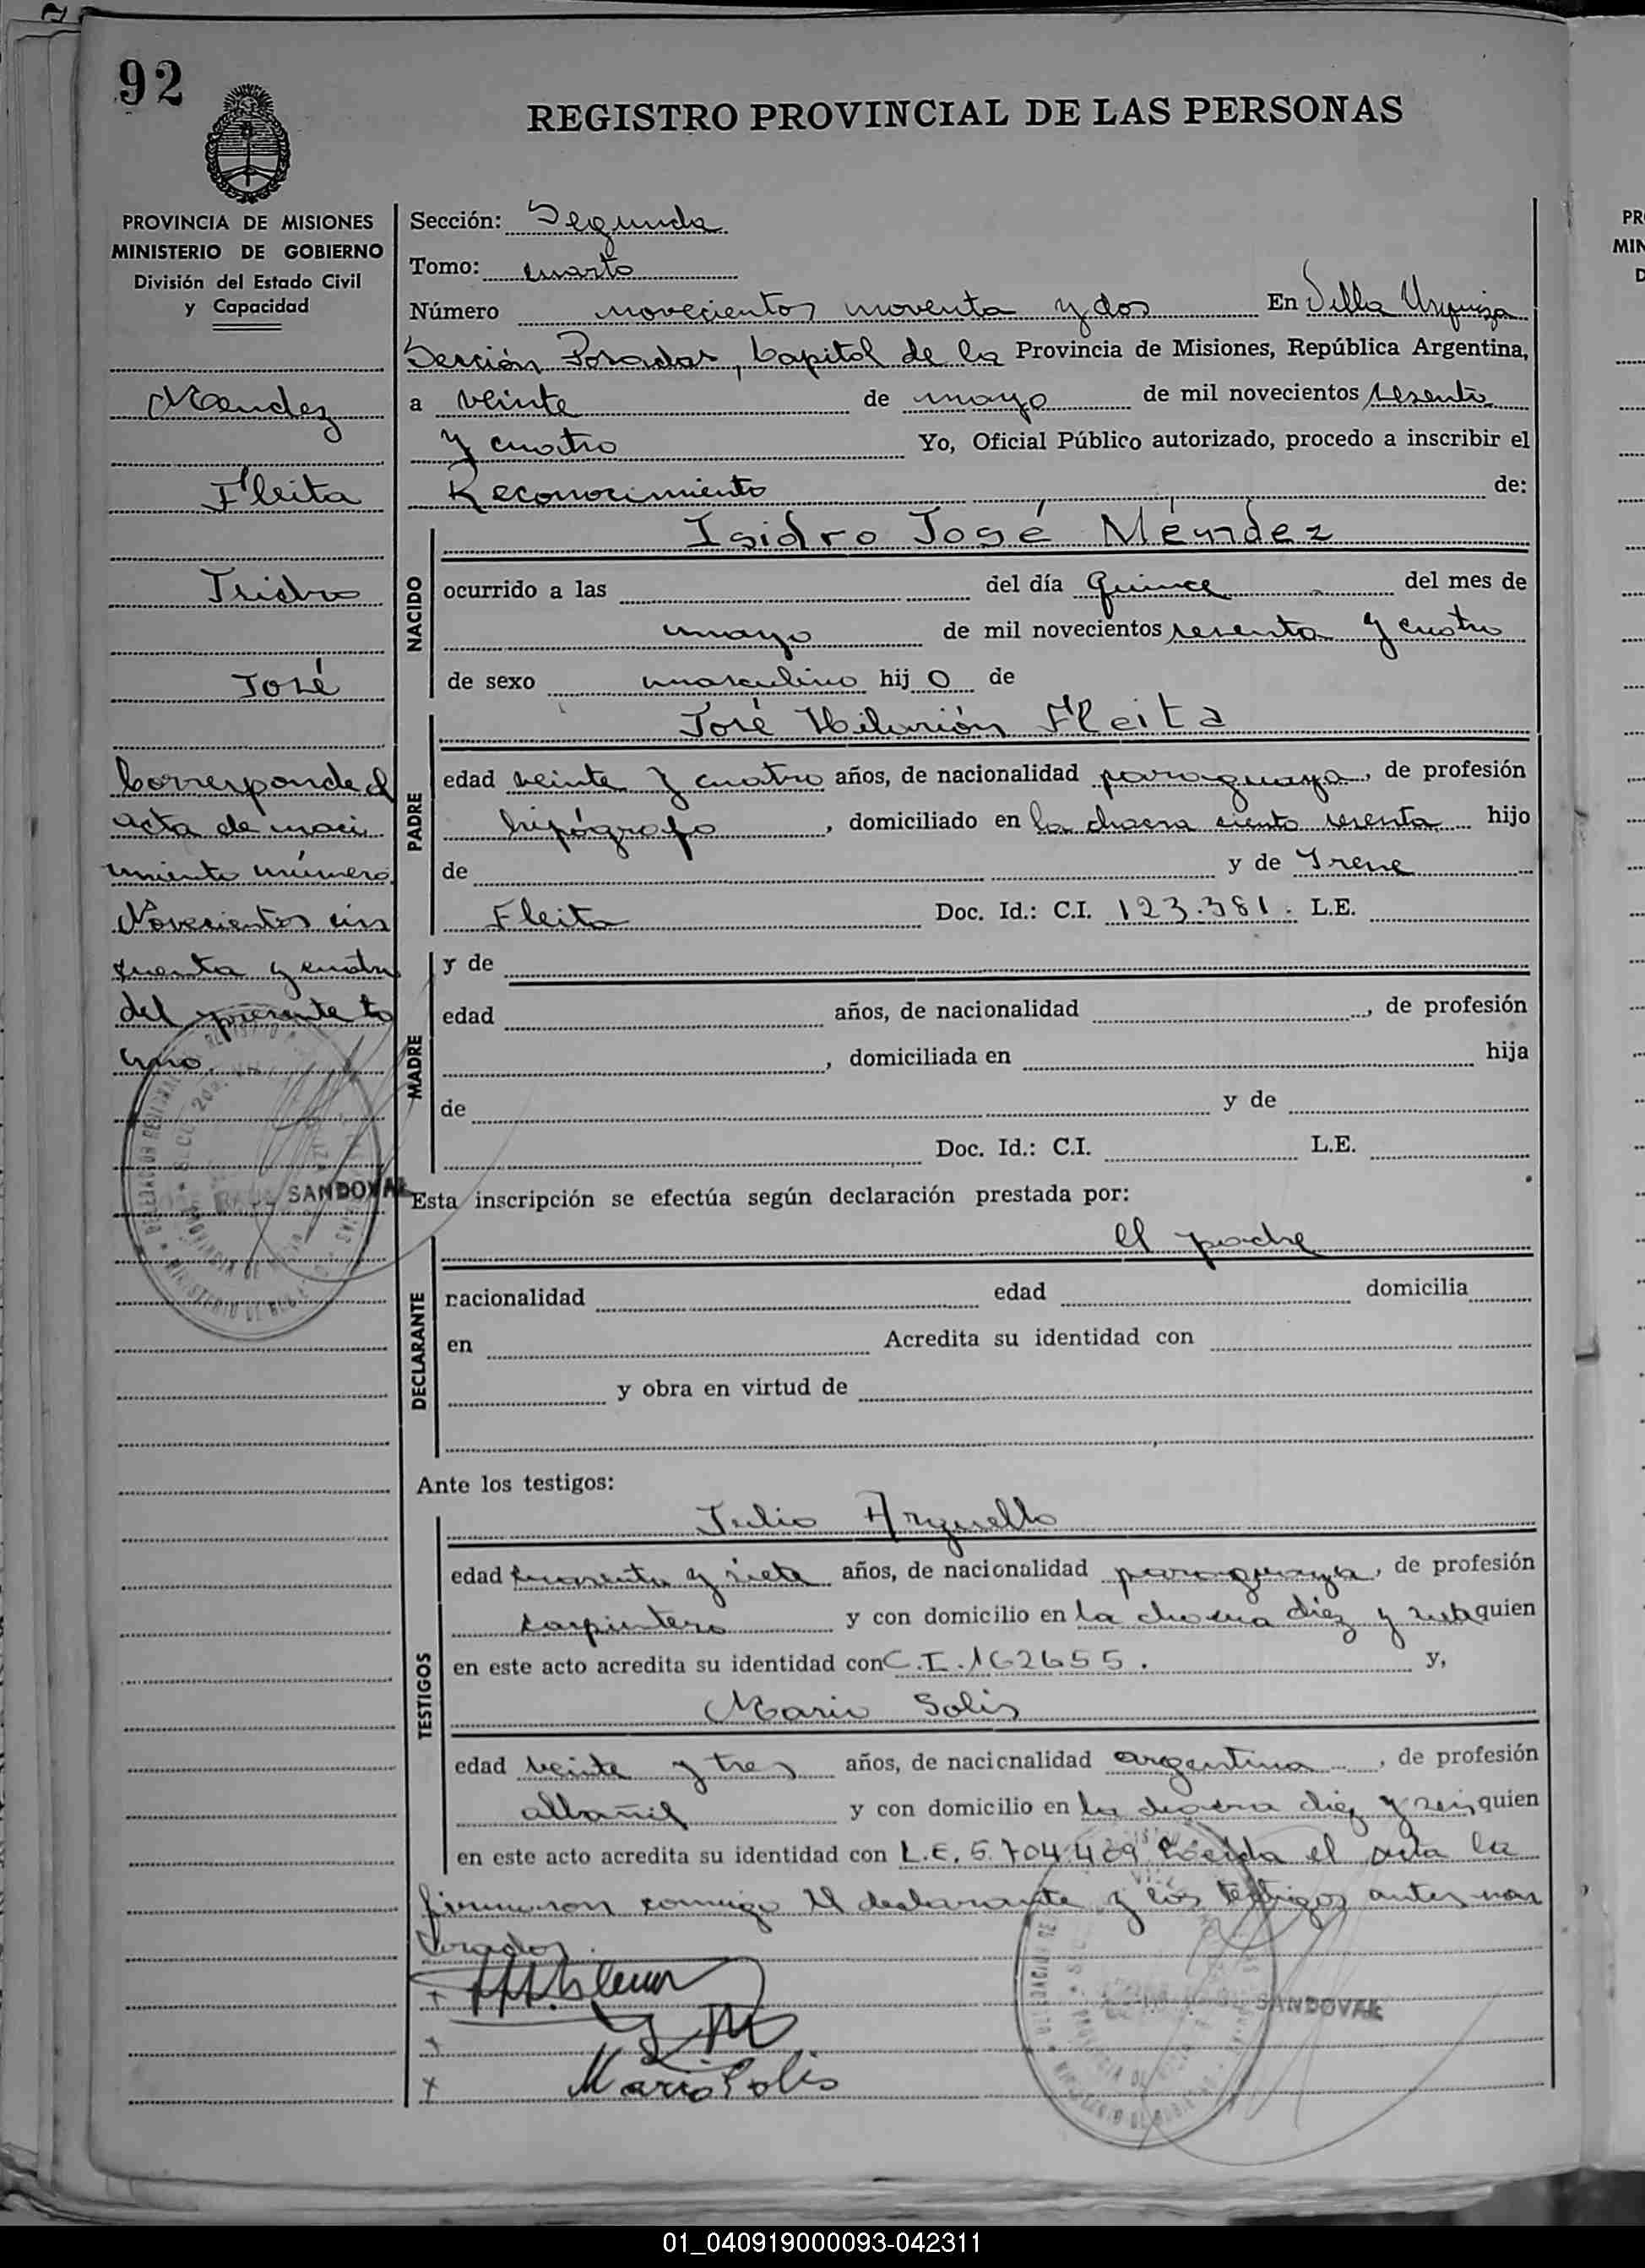 92
REGISTRO PROVINCIAL DE LAS PERSONAS
PROVINCIA DE MISIONES
MINISTERIO DE GOBIERNO
División del Estado Civil
y Capacidad
Mendez
Fleita
Isidro
José
Corresponde al
acta de naci
miento número
Novecientos cin
cuenta y cuatro
del presente to
mo.
SANDOVAL
Sección: Segunda
Tomo: cuarto
Número novecientos noventa y dos En Villa Urquiza
Sección Posadas, Capital de la Provincia de Misiones, República Argentina,
a veinte de mayo de mil novecientos sesenta
y cuatro Yo, Oficial Público autorizado, procedo a inscribir el
Reconocimiento de:
NACIDO
Isidro José Méndez
ocurrido a las del día quince del mes de
mayo de mil novecientos sesenta y cuatro
de sexo masculino hijo de
PADRE
José Hilarión Fleita
edad veinte y cuatro años, de nacionalidad paraguaya, de profesión
hipógrafo, domiciliado en la chacra ciento sesenta hijo
de y de Irene
Fleita Doc. Id.: C.I. 123.381. L.E.
MADRE
y de
edad años, de nacionalidad , de profesión
, domiciliada en hija
de y de
Doc. Id.: C.I. L.E.
Esta inscripción se efectúa según declaración prestada por:
DECLARANTE
el padre
nacionalidad edad domicilia
en Acredita su identidad con
y obra en virtud de
Ante los testigos:
TESTIGOS
Julio Arguello
edad cuarenta y siete años, de nacionalidad paraguaya, de profesión
carpintero y con domicilio en la chacra diez y siete quien
en este acto acredita su identidad con C.I. 162655. y,
Mario Solis
edad veinte y tres años, de nacionalidad argentina, de profesión
albañil y con domicilio en la chacra diez y seis quien
en este acto acredita su identidad con L.E. 5.704.469 Leída el acta la
firmaron conmigo el declarante y los testigos antes nom
brados.
SANDOVAL
Mario Solis
01_040919000093-042311